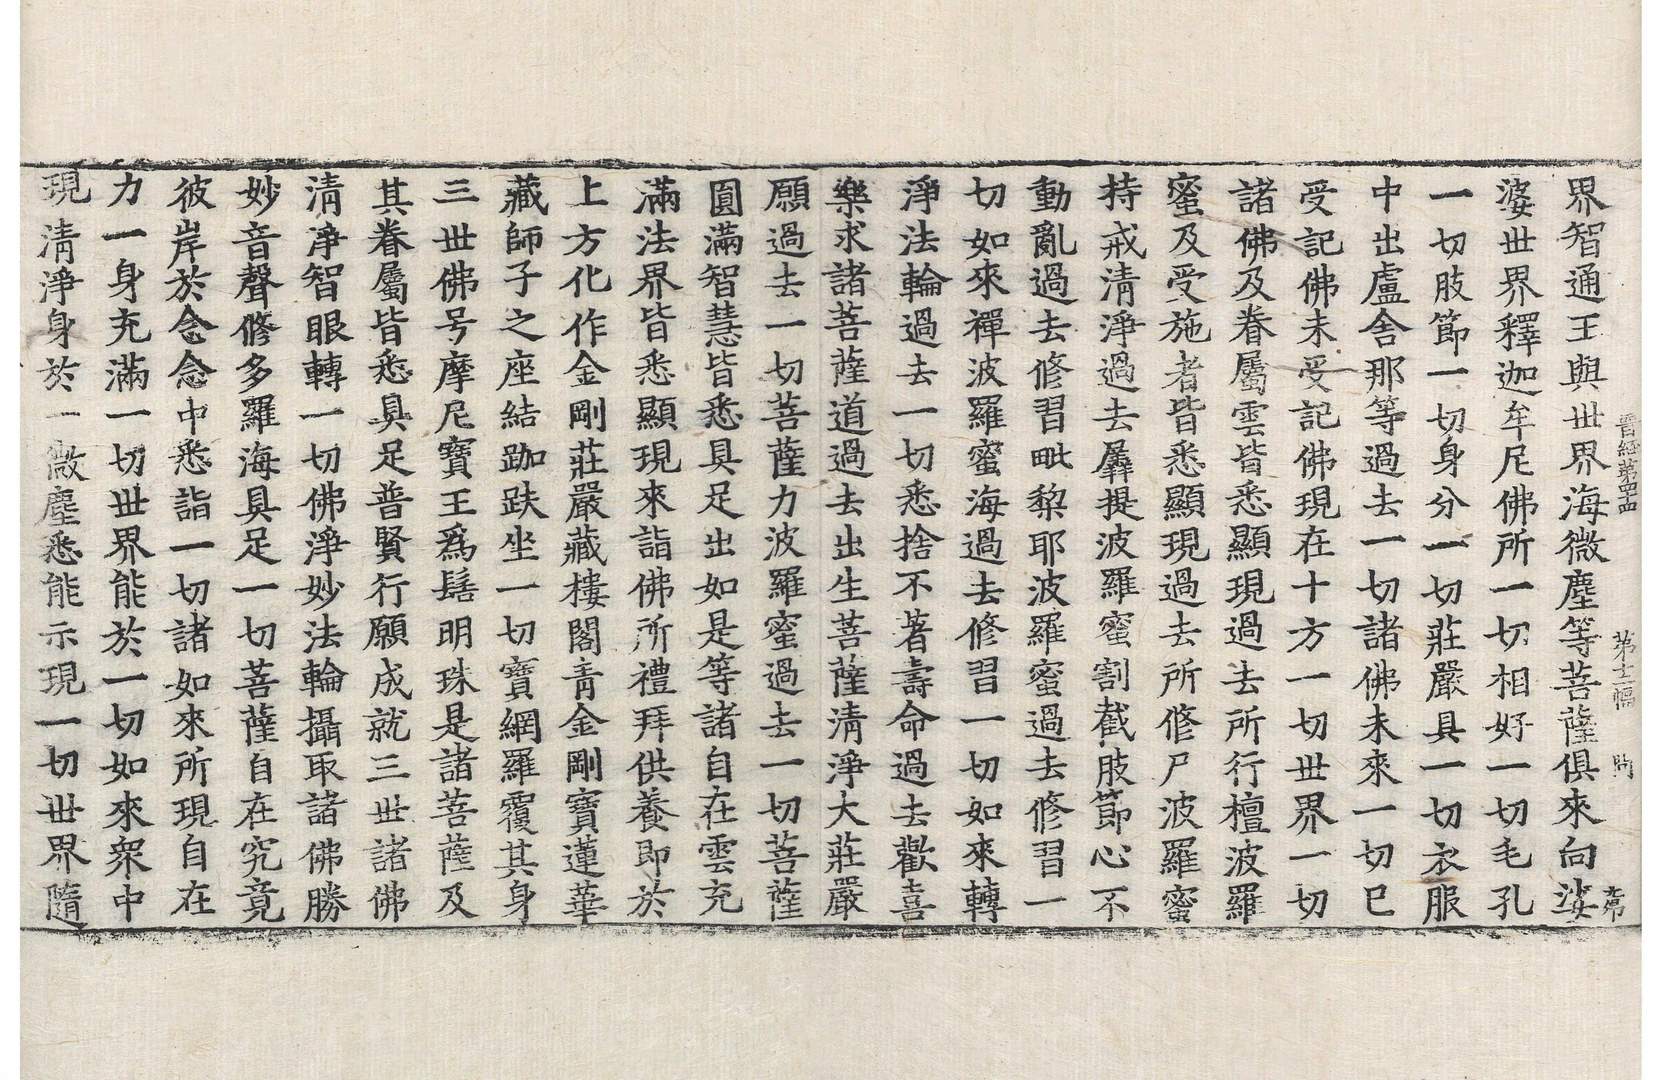 晉經第四十四 第十二幅 帝
界智通王與世界海微塵等菩薩俱來向娑
婆世界釋迦牟尼佛所一切相好一切毛孔
一切肢節一切身分一切莊嚴具一切衣服
中出盧舍那等過去一切諸佛未來一切已
受記佛未受記佛現在十方一切世界一切
諸佛及眷屬雲皆悉顯現過去所行檀波羅
蜜及受施者皆悉顯現過去所修尸波羅蜜
持戒清淨過去羼提波羅蜜割截肢節心不
動亂過去修習毗黎耶波羅蜜過去修習一
切如來禪波羅蜜海過去修習一切如來轉
淨法輪過去一切悉捨不著壽命過去歡喜
樂求諸菩薩道過去出生菩薩清淨大莊嚴
願過去一切菩薩力波羅蜜過去一切菩薩
圓滿智慧皆悉具足出如是等諸自在雲充
滿法界皆悉顯現來詣佛所禮拜供養即於
上方化作金剛莊嚴藏樓閣青金剛寶蓮華
藏師子之座結跏趺坐一切寶網羅覆其身
三世佛号摩尼寶王為髻明珠是諸菩薩及
其眷屬皆悉具足普賢行願成就三世諸佛
清淨智眼轉一切佛淨妙法輪攝取諸佛勝
妙音聲修多羅海具足一切菩薩自在究竟
彼岸於念念中悉詣一切諸如來所現自在
力一身充滿一切世界能於一切如來眾中
現清淨身於一微塵悉能示現一切世界隨